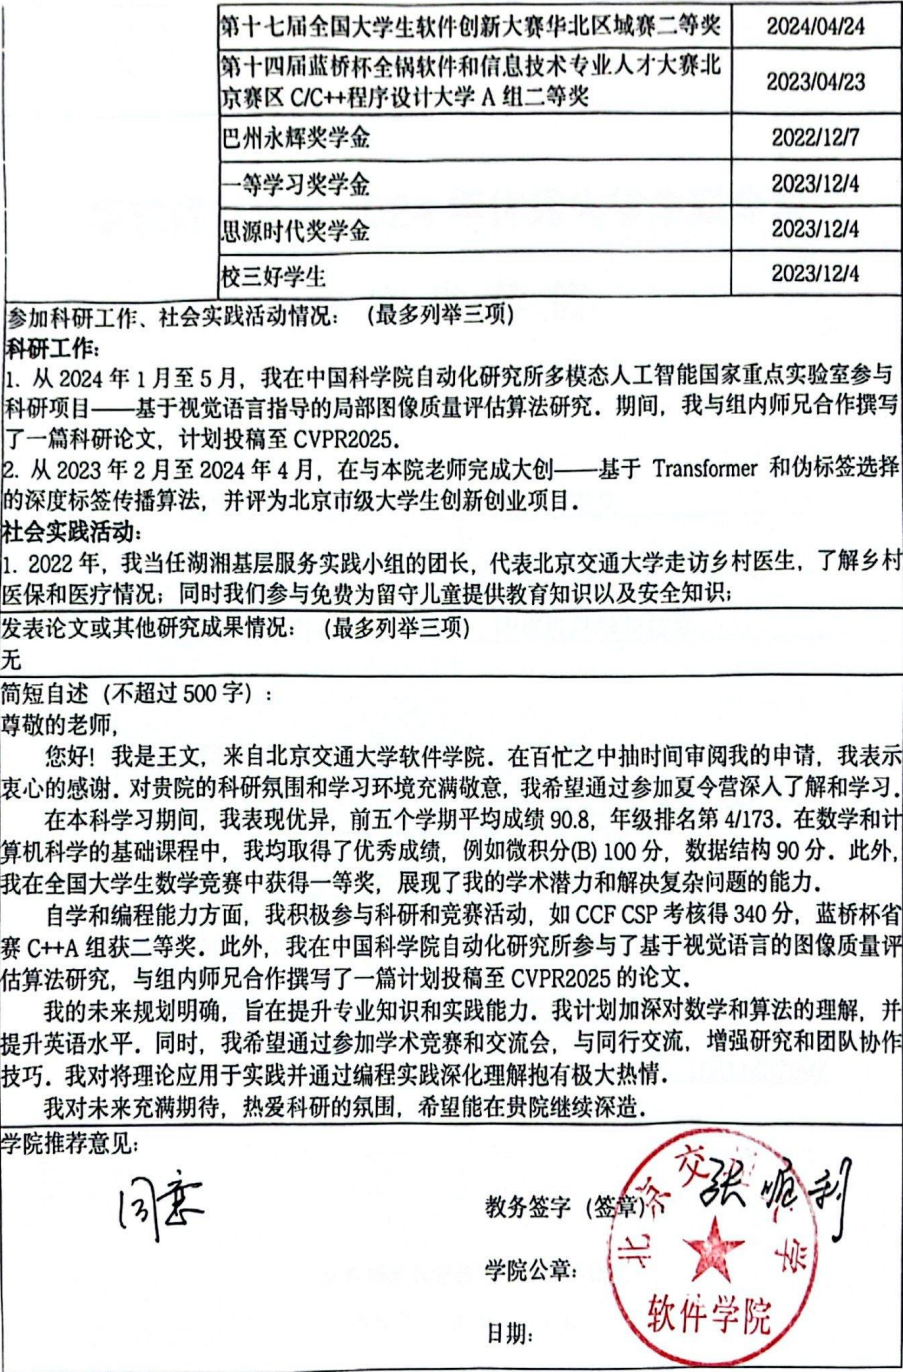 第十七届全国大学生软件创新大赛华北区域赛二等奖 2024/04/24
第十四届蓝桥杯全锅软件和信息技术专业人才大赛北
京赛区 C/C++程序设计大学 A 组二等奖 2023/04/23
巴州永辉奖学金 2022/12/7
一等学习奖学金 2023/12/4
思源时代奖学金 2023/12/4
校三好学生 2023/12/4
参加科研工作、社会实践活动情况：（最多列举三项）
科研工作：
1. 从 2024 年 1 月至 5 月，我在中国科学院自动化研究所多模态人工智能国家重点实验室参与
科研项目——基于视觉语言指导的局部图像质量评估算法研究．期间，我与组内师兄合作撰写
了一篇科研论文，计划投稿至 CVPR2025．
2. 从 2023 年 2 月至 2024 年 4 月，在与本院老师完成大创——基于 Transformer 和伪标签选择
的深度标签传播算法，并评为北京市级大学生创新创业项目．
社会实践活动：
1. 2022 年，我当任湖湘基层服务实践小组的团长，代表北京交通大学走访乡村医生，了解乡村
医保和医疗情况；同时我们参与免费为留守儿童提供教育知识以及安全知识；
发表论文或其他研究成果情况：（最多列举三项）
无
简短自述（不超过 500 字）：
尊敬的老师，
您好！我是王文，来自北京交通大学软件学院．在百忙之中抽时间审阅我的申请，我表示
衷心的感谢．对贵院的科研氛围和学习环境充满敬意，我希望通过参加夏令营深入了解和学习．
在本科学习期间，我表现优异，前五个学期平均成绩 90.8，年级排名第 4/173．在数学和计
算机科学的基础课程中，我均取得了优秀成绩，例如微积分(B) 100 分，数据结构 90 分．此外，
我在全国大学生数学竞赛中获得一等奖，展现了我的学术潜力和解决复杂问题的能力．
自学和编程能力方面，我积极参与科研和竞赛活动，如 CCF CSP 考核得 340 分，蓝桥杯省
赛 C++A 组获二等奖．此外，我在中国科学院自动化研究所参与了基于视觉语言的图像质量评
估算法研究，与组内师兄合作撰写了一篇计划投稿至 CVPR2025 的论文．
我的未来规划明确，旨在提升专业知识和实践能力．我计划加深对数学和算法的理解，并
提升英语水平．同时，我希望通过参加学术竞赛和交流会，与同行交流，增强研究和团队协作
技巧．我对将理论应用于实践并通过编程实践深化理解抱有极大热情．
我对未来充满期待，热爱科研的氛围，希望能在贵院继续深造．
学院推荐意见：
同意
教务签字（签章）： 张顺利
学院公章：
北京交通大学
软件学院
日期：